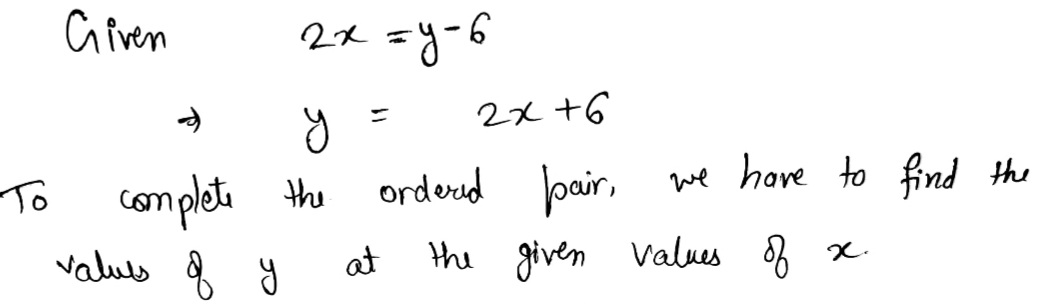 Given 2x = y - 6
⇒ y = 2x + 6
To complete the ordered pair, we have to find the
values of y at the given values of x.